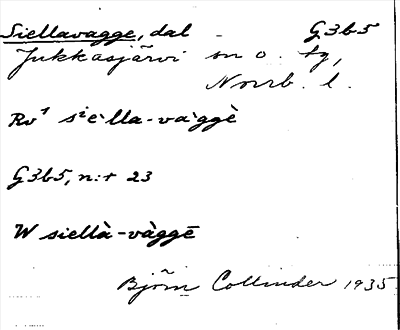 Siellavagge, dal - G3b5
Jukkasjärvi sn o. tg,
Norrb. l.
Rv¹ siella-vaggè
G3b5, n:r 23
W siellà-vàggē
Björn Collinder 1935